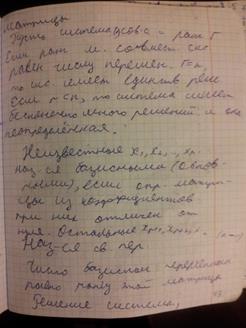 матрицы
Пусть система совс-а =
Если ранг м. совмест. сис
равен числу перемен. r=n,
то сис. имеет единств реше
если r<n, то система имеет
бесконечно много решений и она
неопределённая.
Неизвестные x₁, x₂, ..., xᵣ
наз-ся базисными (основ
ными), если опр. матри-
цы из коэффициентов
при них отличен от
нуля. Остальные
Наз-ся св. пер.
Число базисных переменных
равно рангу этой матрицы
Решение системы,